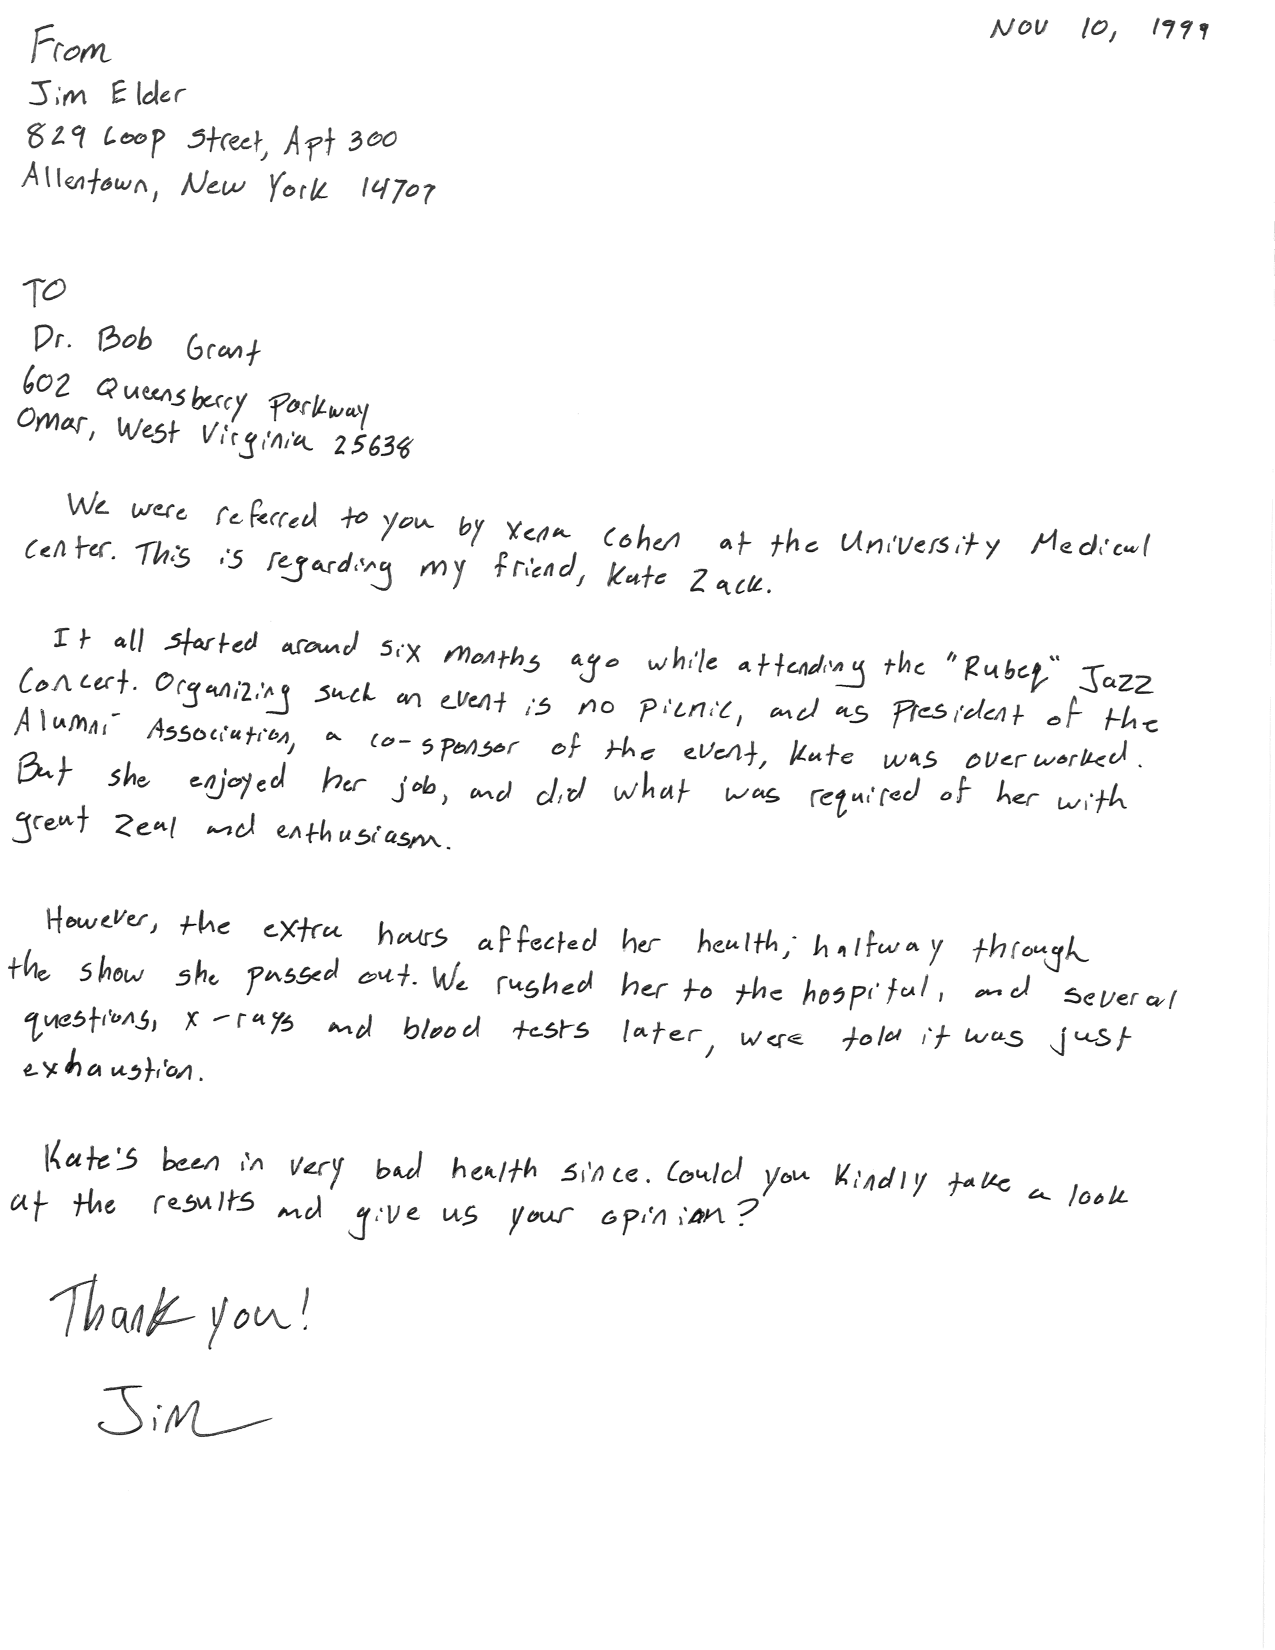 Nov 10, 1999
From
Jim Elder
829 Loop Street, Apt 300
Allentown, New York 14707
TO
Dr. Bob Grant
602 Queensberry Parkway
Omar, West Virginia 25638
We were referred to you by Xena Cohen at the University Medical
Center. This is regarding my friend, Kate Zack.
It all started around six months ago while attending the "Rubeq" Jazz
Concert. Organizing such an event is no picnic, and as President of the
Alumni Association, a co-sponsor of the event, Kate was overworked.
But she enjoyed her job, and did what was required of her with
great zeal and enthusiasm.
However, the extra hours affected her health; halfway through
the show she passed out. We rushed her to the hospital, and several
questions, x-rays and blood tests later, were told it was just
exhaustion.
Kate's been in very bad health since. Could you kindly take a look
at the results and give us your opinion?
Thank you!
Jim